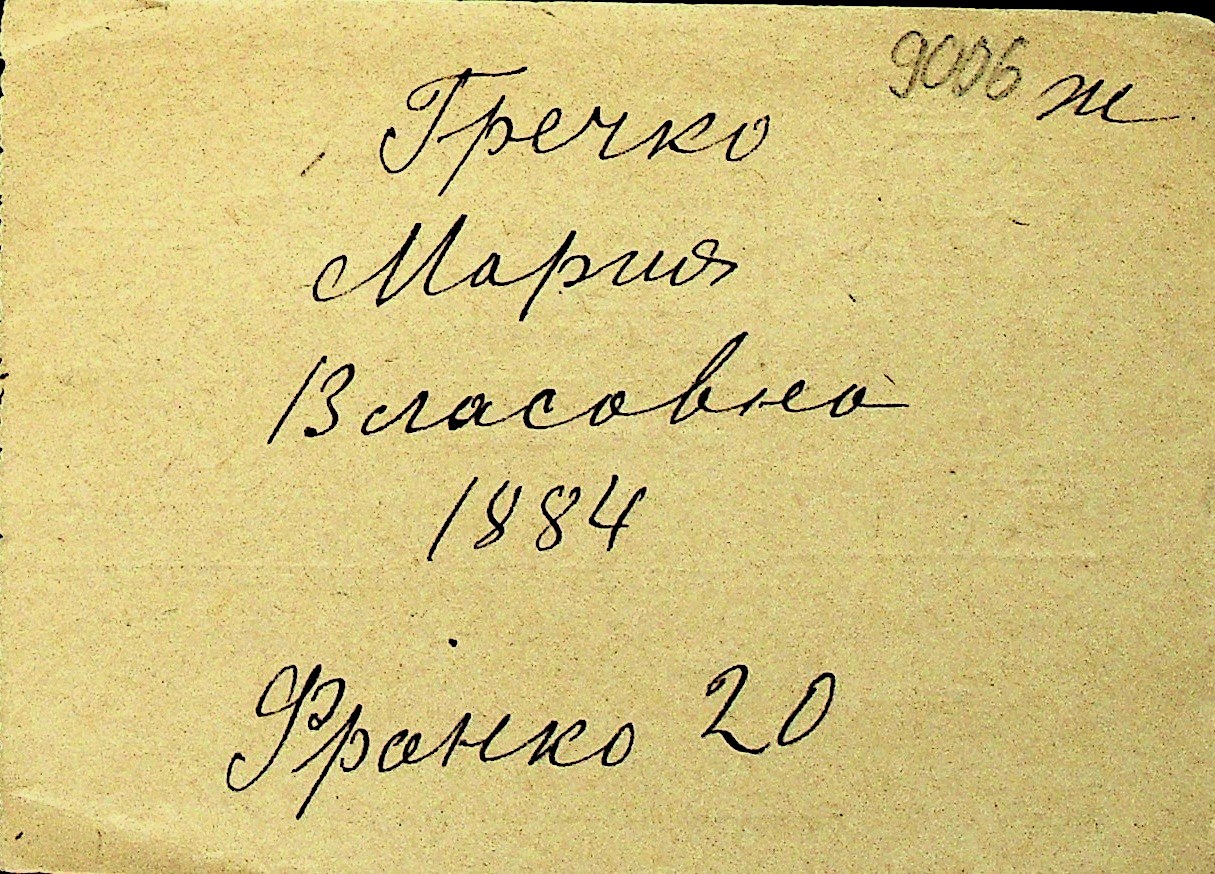 9006 ж
Гречко
Мария
Власовна
1884
Франко 20